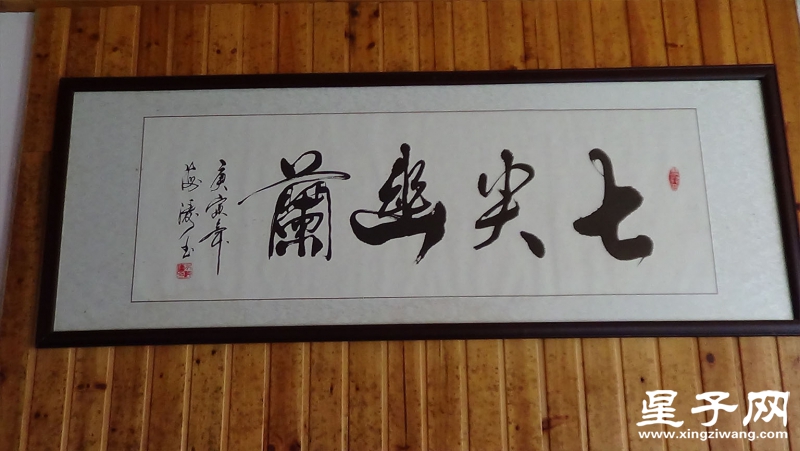 七尖幽蘭
庚寅年
星子网
www.xingziwang.com